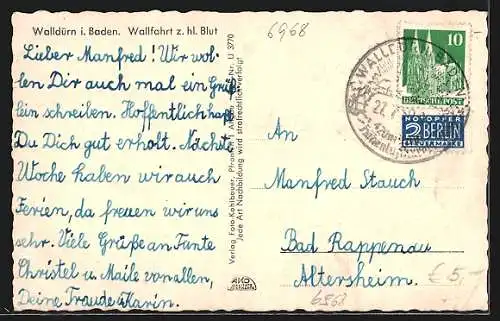 Walldürn i. Baden. Wallfahrt z. hl. Blut
6968
Lieber Manfred! Wir wol-
len Dir auch mal ein Grüß-
lein schreiben. Hoffentlich hast
Du Dich gut erholt. Nächste
Woche haben wir auch
Ferien, da freuen wir uns
sehr. Viele Grüße an Tante
Christel u. Maile von allen,
Deine Traude Karin.
Verlag Foto Kohlbauer, Pfronten
Archiv-Nr. U 3770
Jede Art Nachbildung wird strafrechtlich verfolgt
WALLDÜRN
27.7
10
DEUTSCHE POST
NOTOPFER
2 BERLIN
STEUERMARKE
An
Manfred Stauch
Bad Rappenau
Altersheim.
€ 5,-